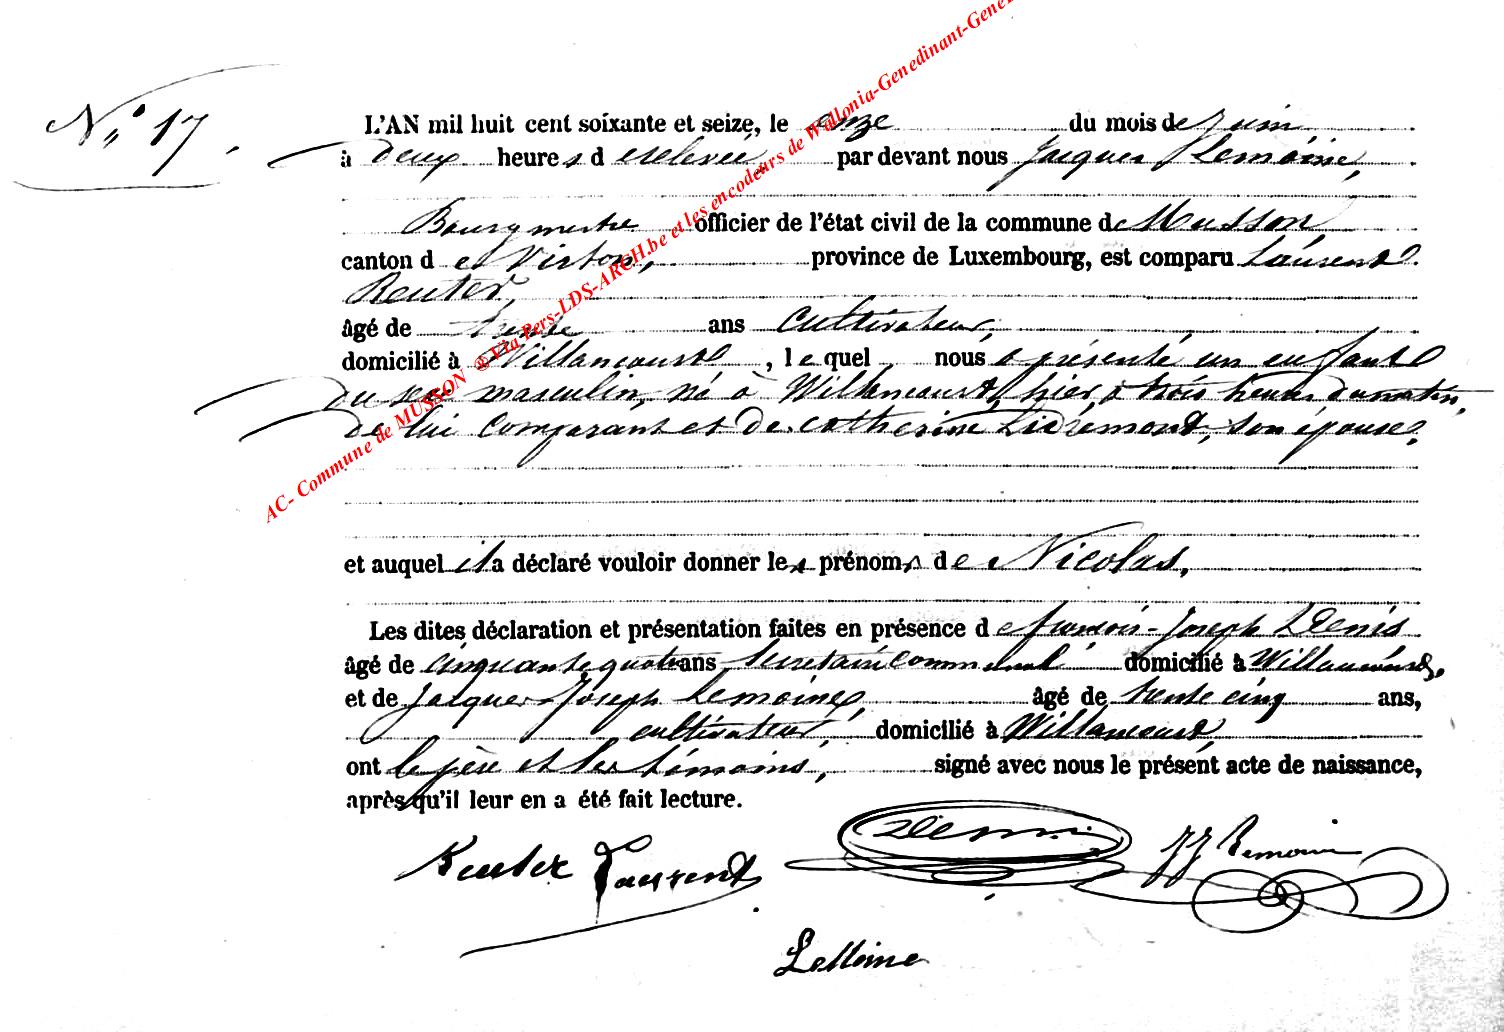 N° 17.
L'AN mil huit cent soixante et seize, le onze du mois de juin
à deux heures de relevée par devant nous Jacques Lemoine,
Bourgmestre officier de l'état civil de la commune de Musson
canton de Virton, province de Luxembourg, est comparu Laurent
Reuter,
âgé de trente ans cultivateur,
domicilié à Willancourt, lequel nous a présenté un enfant
du sexe masculin, né à Willancourt, hier, à trois heures du matin,
de lui comparant et de Catherine Lidrémont, son épouse,
et auquel il a déclaré vouloir donner les prénoms de Nicolas,
Les dites déclaration et présentation faites en présence de françois-Joseph Denis
âgé de cinquante quatre ans secrétaire communal domicilié à Willancourt,
et de Jacques Joseph Lemoine, âgé de trente cinq ans,
cultivateur, domicilié à Willancourt,
ont le père et les témoins, signé avec nous le présent acte de naissance,
après qu'il leur en a été fait lecture.
Reuter Laurent Denis JJ Lemoine
LeMoine
AC- Commune de MUSSON ®Via Pers-LDS-ARCH.be et les encodeurs de Wallonia-Genedinant-Gene